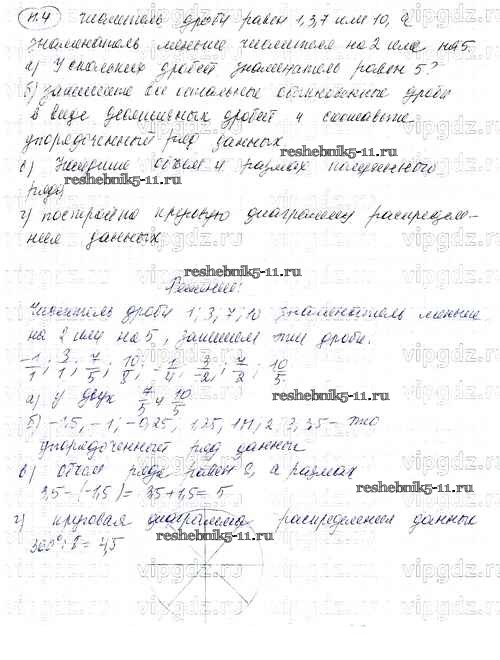 п.4 Числитель дроби равен 1,3,7 или 10, а
знаменатель меньше числителя на 2 или на 5.
а) У скольких дробей знаменатель равен 5?
б) запишите все остальные обыкновенные дроби
в виде десятичных дробей и составьте
упорядоченный ряд данных
с) Найдите объем и размах полученного
reshebnik5-11.ru
ряда
г) постройте круговую диаграмму распределе-
ния данных
reshebnik5-11.ru
Решение:
Числитель дроби 1; 3; 7; 10 знаменатель меньше
на 2 или на 5, запишем эти дроби:
-1/1; 3/1; 7/5; 10/8; -1/4; 3/-2; 7/2; 10/5.
а) у двух 7/5 и 10/5
reshebnik5-11.ru
б) -1,5, -1; -0,25, 1,25, 1,4, 2, 3, 3,5 - это
упорядоченный ряд данных
в) объем ряда равен 8, а размах
3,5-(-1,5)= 3,5+1,5= 5
reshebnik5-11.ru
г) круговая диаграмма распределения данных
360°:8= 4,5
reshebnik5-11.ru
vipgdz.ru